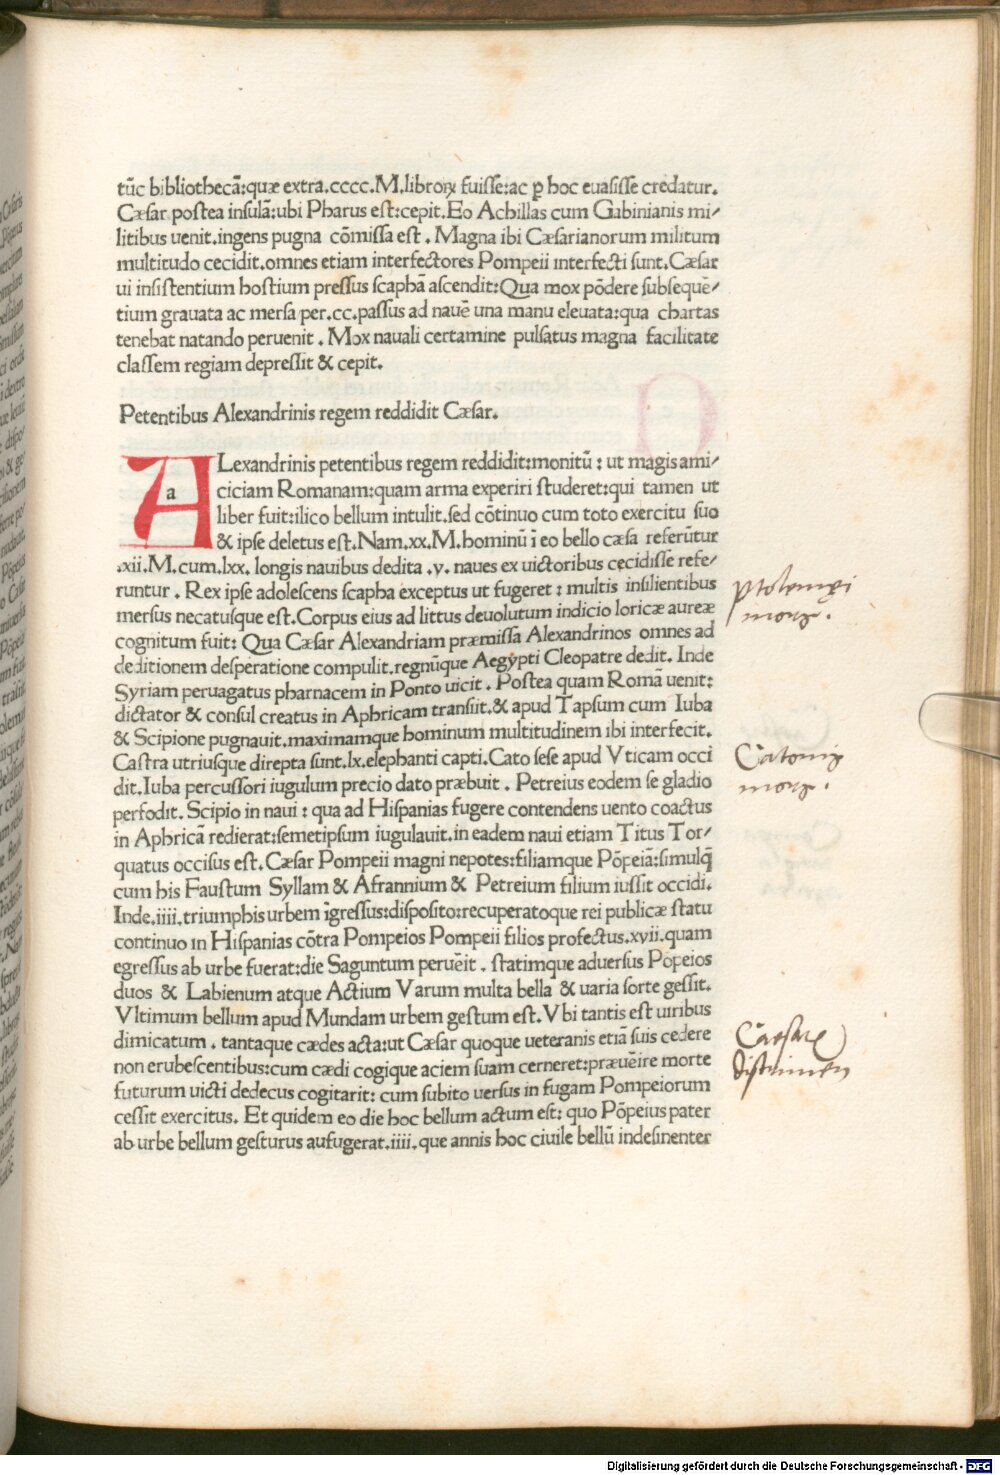 tūc bibliothecā:quæ extra.cccc.M.libroꝝ fuisse:ac ꝑ hoc euasisse credatur.
Cæsar postea insulā:ubi Pharus est:cepit.Eo Achillas cum Gabinianis mi/
litibus uenit.ingens pugna cōmissa est . Magna ibi Cæsarianorum militum
multitudo cecidit.omnes etiam interfectores Pompeii interfecti sunt.Cæsar
ui insistentium hostium pressus scaphā ascendit:Qua mox pōdere subsequē/
tium grauata ac mersa per.cc.passus ad nauē una manu eleuata:qua chartas
tenebat natando peruenit . Mox nauali certamine pulsatus magna facilitate
classem regiam depressit & cepit.
Petentibus Alexandrinis regem reddidit Cæsar.
a
A Lexandrinis petentibus regem reddidit:monitū : ut magis ami/
ciciam Romanam:quam arma experiri studeret:qui tamen ut
liber fuit:ilico bellum intulit.sed cōtinuo cum toto exercitu suo
& ipse deletus est.Nam.xx.M.hominū ī eo bello cæsa referūtur
.xii.M.cum.lxx. longis nauibus dedita .v. naues ex uictoribus cęcidisse refe/
runtur . Rex ipse adolescens scapha exceptus ut fugeret : multis insilientibus
mersus necatusque est.Corpus eius ad littus deuolutum indicio loricæ aureæ
cognitum fuit: Qua Cæsar Alexandriam præmissa Alexandrinos omnes ad
deditionem desperatione compulit.regnūque Aegypti Cleopatre dedit. Inde
Syriam peruagatus pharnacem in Ponto uicit . Postea quam Romā uenit:
dictator & consul creatus in Aphricam transiit.& apud Tapsum cum Iuba
& Scipione pugnauit.maximamque hominum multitudinem ibi interfecit.
Castra utriusque direpta sunt.lx.elephanti capti.Cato sese apud Vticam occi
dit.Iuba percussori iugulum precio dato præbuit . Petreius eodem se gladio
perfodit.Scipio in naui : qua ad Hispanias fugere contendens uento coactus
in Aphricā redierat:semetipsum iugulauit.in eadem naui etiam Titus Tor/
quatus occisus est.Cæsar Pompeii magni nepotes:filiamque Pōpeiā:simulq̄
cum his Faustum Syllam & Afrannium & Petreium filium iussit occidi.
Inde.iiii.triumphis urbem īgressus:disposito:recuperatoque rei publicæ statu
continuo in Hispanias cōtra Pompeios Pompeii filios profectus.xvii.quam
egressus ab urbe fuerat:die Saguntum peruēit . statimque aduersus Pōpeios
duos & Labienum atque Actium Varum multa bella & uaria sorte gessit.
Vltimum bellum apud Mundam urbem gestum est.Vbi tantis est uiribus
dimicatum . tantaque cædes acta:ut Cæsar quoque ueteranis etiā suis cedere
non erubescentibus:cum cædi cogique aciem suam cerneret:præuēire morte
futurum uicti dedecus cogitarit: cum subito uersus in fugam Pompeiorum
cessit exercitus. Et quidem eo die hoc bellum actum est: quo Pōpeius pater
ab urbe bellum gesturus aufugerat.iiii.que annis hoc ciuile bellū indesinenter
Ptolemęi
mors.
Catonis
mors.
Caesare
discrimen
Digitalisierung gefördert durch die Deutsche Forschungsgemeinschaft - DFG